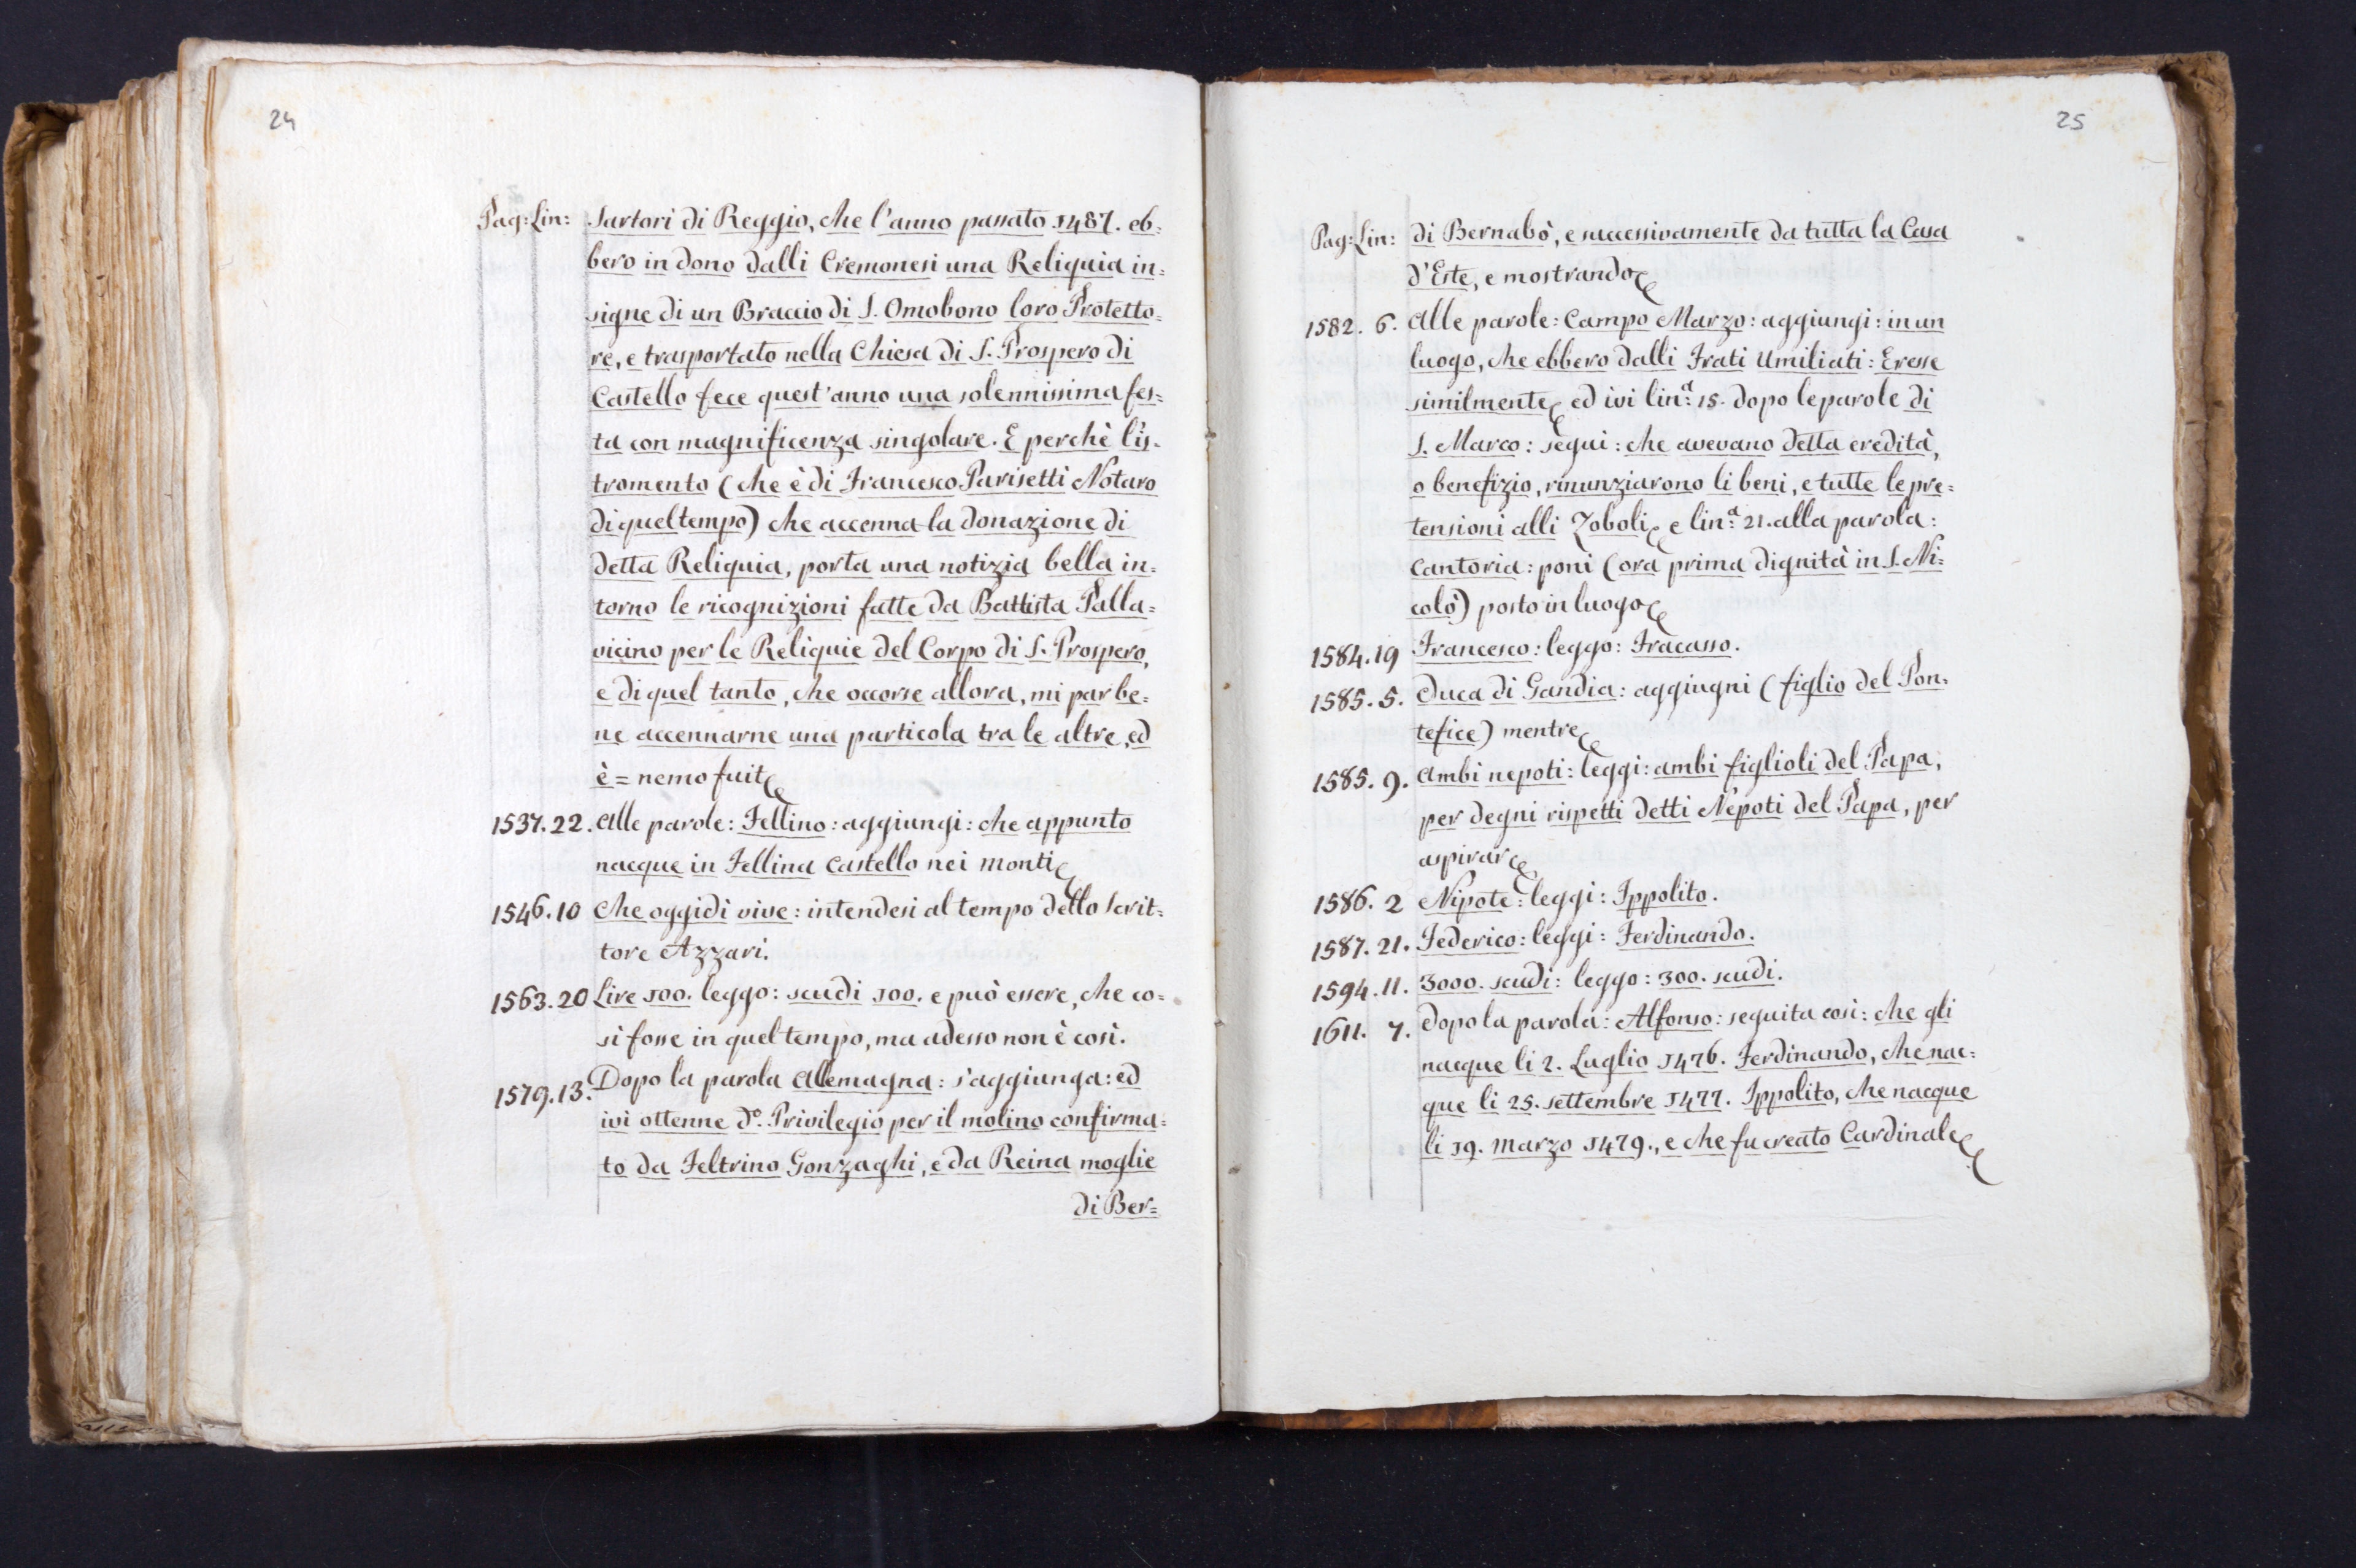 24
Pag: Lin: Sartori di Reggio, che l'anno passato 1487. eb=
bero in dono dalli Cremonesi una Reliquia in=
signe di un Braccio di S. Omobono loro Protetto=
re, e trasportato nella Chiesa di S. Prospero di
Castello fece quest'anno una solennissima fes=
ta con magnificenza singolare. E perchè l'is=
tromento (che è di Francesco Parisetti Notaro
di quel tempo) che accenna la donazione di
detta Reliquia, porta una notizia bella in=
torno le ricognizioni fatte da Battista Palla=
vicino per le Reliquie del Corpo di S. Prospero,
e di quel tanto, che occorse allora, mi par be=
ne accennarne una particola tra le altre, ed
è = nemo fuit
1537. 22. Alle parole: Fellino: aggiungi: che appunto
nacque in Fellina Castello nei monti
1546. 10 Che oggidi vive: intendesi al tempo dello Scrit=
tore Azzari.
1563. 20 Lire 100. leggo: scudi 100. e può essere, che co=
sì fosse in quel tempo, ma adesso non è così.
1579. 13. Dopo la parola Allemagna: s'aggiunga: ed
ivi ottenne d.º Privilegio per il molino confirma=
to da Feltrino Gonzaghi, e da Reina moglie
di Ber=
25
Pag: Lin: di Bernabò, e successivamente da tutta la Casa
d'Este, e mostrando
1582. 6. Alle parole: Campo Marzo: aggiungi: in un
luogo, che ebbero dalli Frati Umiliati: Eresse
similmente ed ivi lin.ª 15. dopo le parole di
S. Marco: segui: che avevano detta eredità,
o benefizio, rinunziarono li beni, e tutte le pre=
tensioni alli Zoboli e lin.ª 21. alla parola:
Cantoria: poni (ora prima dignità in S. Ni=
colò) posto in luogo
1584. 19 Francesco: leggo: Fracasso.
1585. 5. Duca di Gandia: aggiugni (figlio del Pon=
tefice) mentre
1585. 9. Ambi nepoti: leggi: ambi figlioli del Papa,
per degni rispetti detti Nepoti del Papa, per
aspirar
1586. 2 Nipote: leggi: Ippolito.
1587. 21. Federico: leggi: Ferdinando.
1594. 11. 3000. scudi: leggo: 300. scudi.
1611. 7. Dopo la parola: Alfonso: seguita così: che gli
nacque li 2. Luglio 1476. Ferdinando, che nac=
que li 25. settembre 1477. Ippolito, che nacque
li 19. Marzo 1479., e che fu creato Cardinale